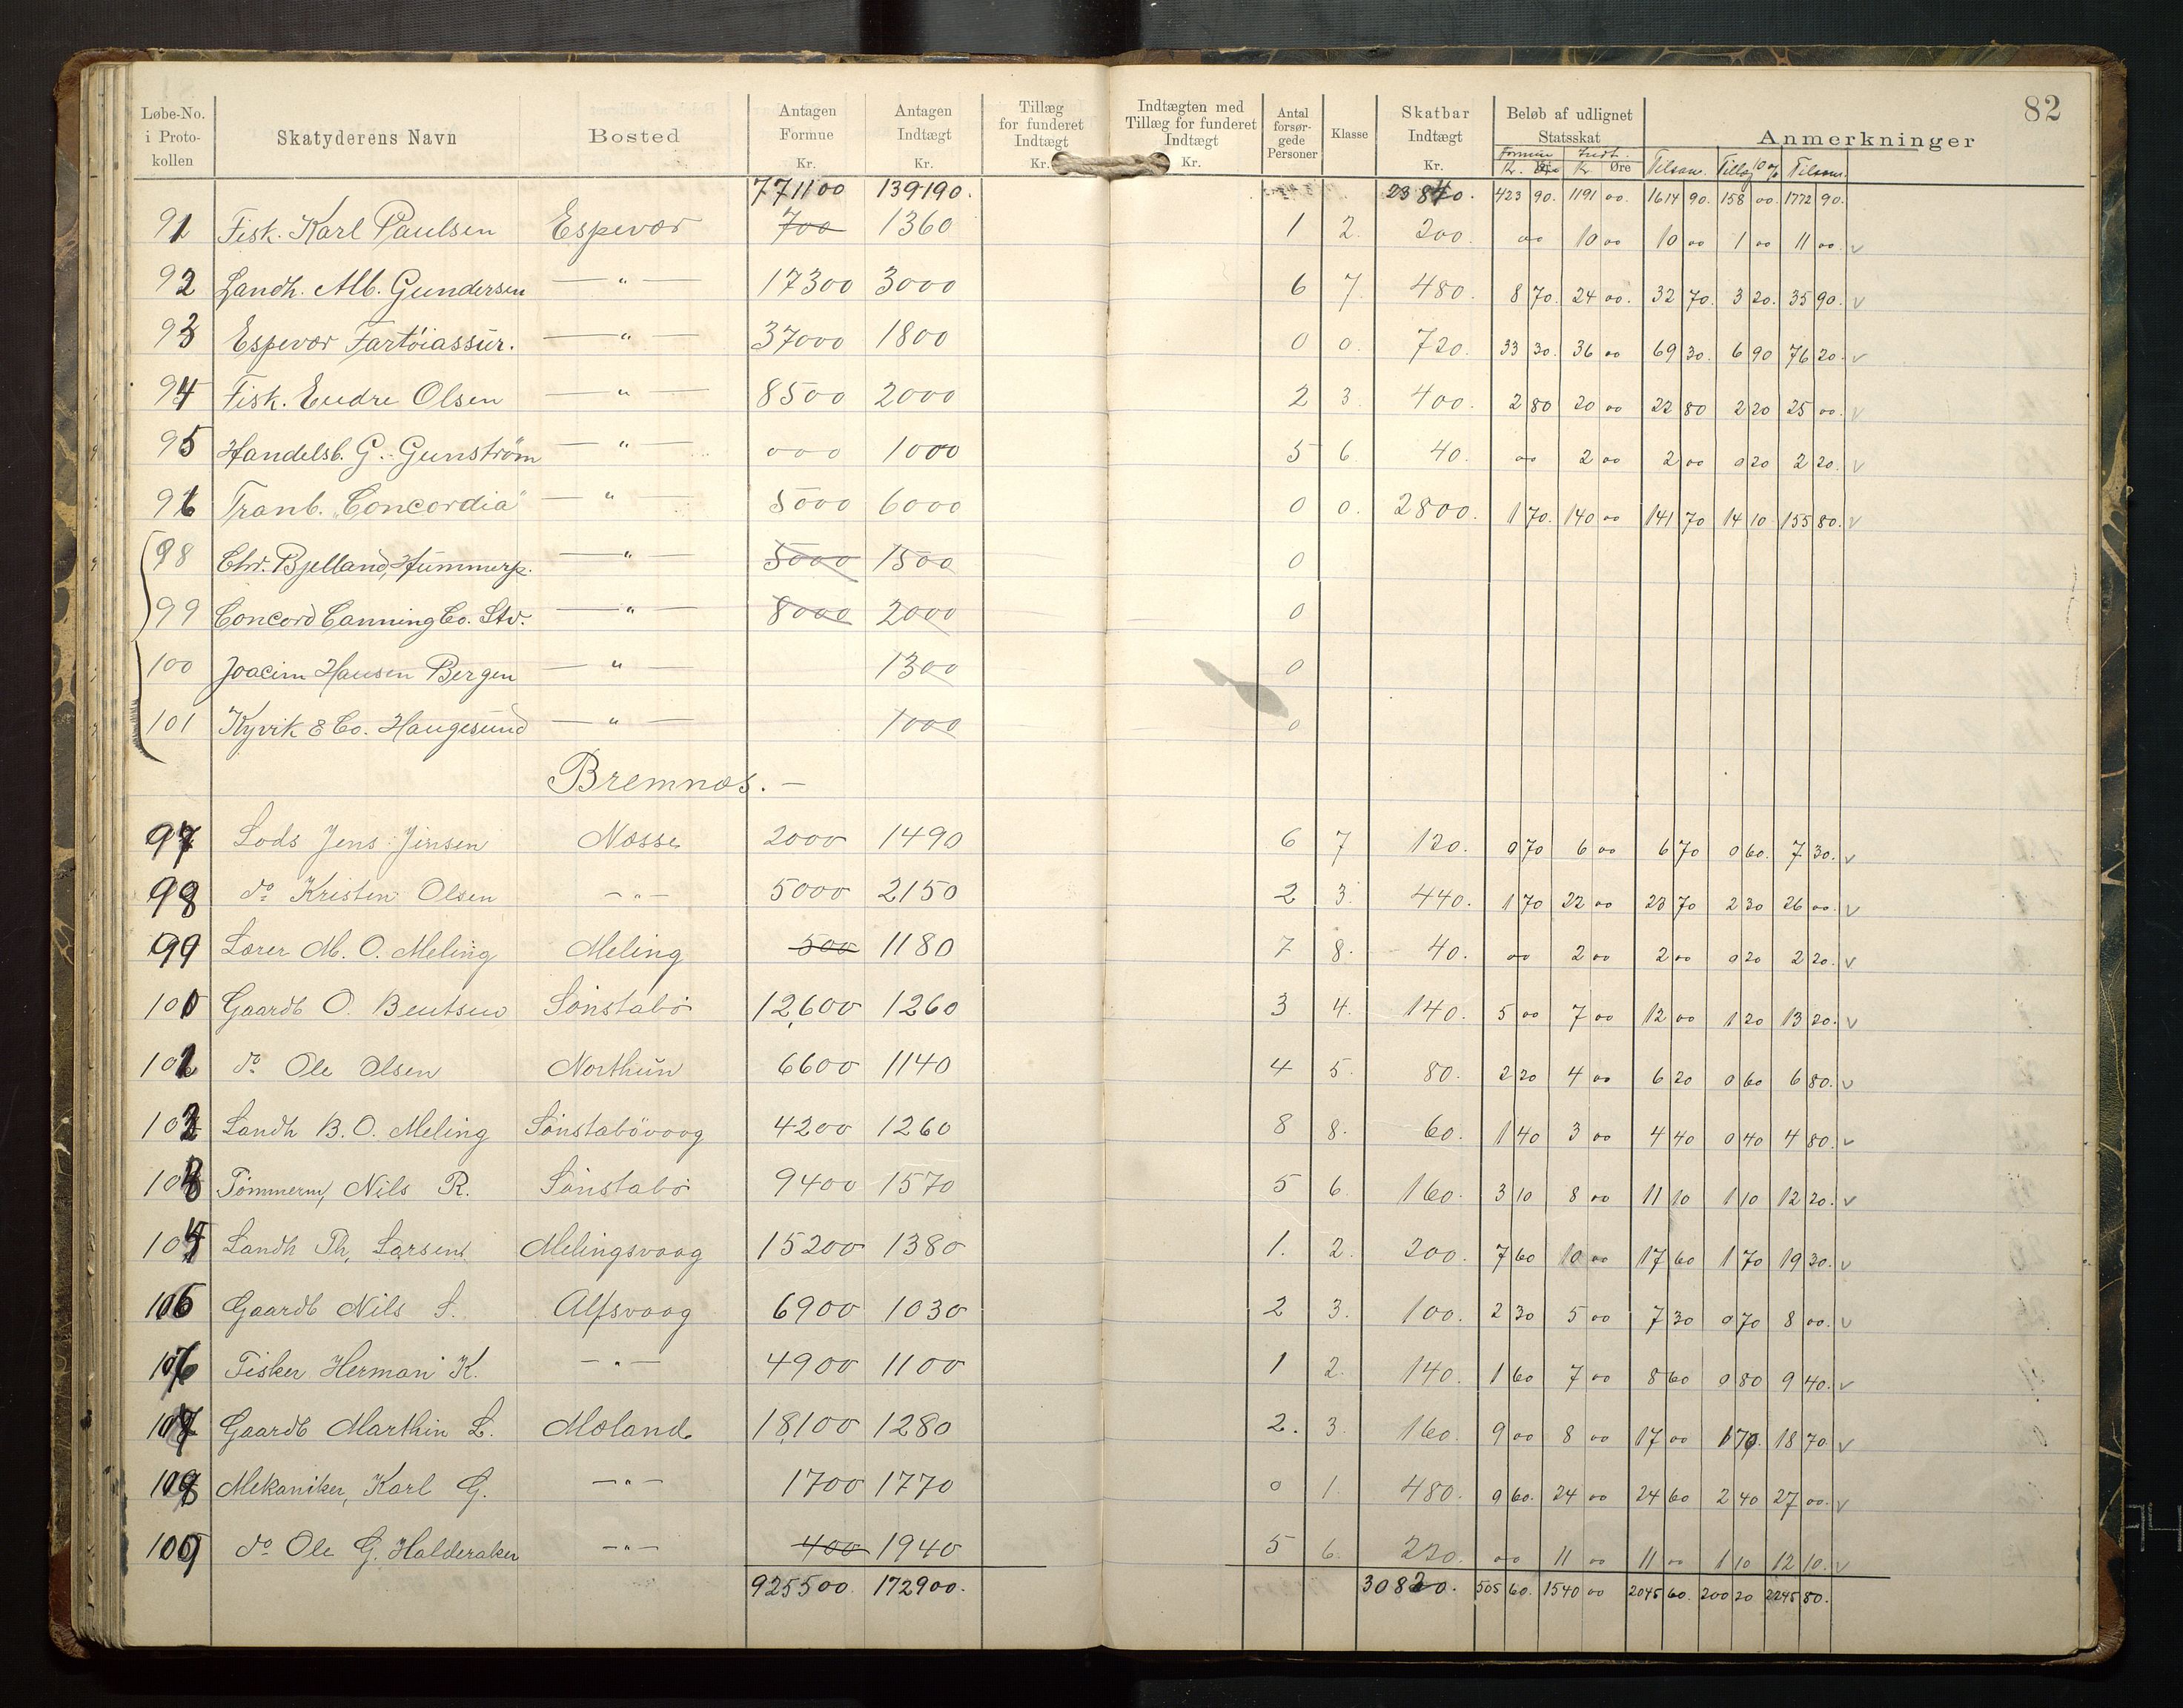 82
Løbe-No. i Proto-kollen | Skatyderens Navn | Bosted | Antagen Formue Kr. | Antagen Indtægt Kr. | Tillæg for funderet Indtægt Kr. | Indtægten med Tillæg for funderet Indtægt Kr. | Antal forsør-gede Personer | Klasse | Skatbar Indtægt Kr. | Beløb af udlignet Statsskat Formue Kr. Indt. Kr. Øre | Anmerkninger Tilsam. Tillæg 10 % Tilsam.
771100 139190. 23840. 423 90. 1191 00. 1614 90. 158 00. 1772 90.
91 Fisk. Karl Paulsen Espevær 700 1360 1 2. 200. 00 10 00 10 00 1 00 11 00. v
92 Landh. Alb. Gundersen —"— 17300 3000 6 7. 480. 8 70. 24 00. 32 70. 3 20. 35 90. v
93 Espevær Fartöiassür. —"— 37000 1800 0 0. 720. 33 30. 36 00 69 30. 6 90 76 20. v
94 Fisk. Endre Olsen —"— 8500 2000 2 3. 400. 2 80 20 00 22 80 2 20 25 00. v
95 Handelsb. G. Gunström —"— 000 1000 5 6. 40. 00 2 00 2 00 0 20 2 20. v
96 Tranb. „Concordia" —"— 5000 6000 0 0. 2800. 1 70. 140 00 141 70 14 10 155 80. v
98 Chr. Bjelland, Hümmerp. —"— 5000 1500 0
99 Concord Canning Co. Stv. —"— 8000 2000 0
100 Joacim Hansen Bergen —"— 1300 0
101 Kyvik & Co. Haugesund —"— 1000 0
Bremnæs. —
97 Lods Jens Jensen Næsse 2000 1490 6 7 120. 0 70 6 00 6 70 0 60. 7 30. v
98 do Kristen Olsen —"— 5000 2150 2 3. 440. 1 70 22 00 23 70 2 30 26 00. v
99 Lærer M. O. Meling Meling 500 1180 7 8. 40. 00 2 00 2 00 0 20 2 20. v
100 Gaardb O. Bentsen Sönstabö 12,600 1260 3 4. 140. 5 00 7 00 12 00 1 20 13 20. v
101 do Ole Olsen Northün 6600 1140 4 5. 80. 2 20 4 00 6 20 0 60 6 80. v
102 Landh B. O. Meling Sönstabövaag 4200 1260 8 8. 60. 1 40 3 00 4 40 0 40 4 80. v
103 Tömmerm, Nils R. Sönstabö 9400 1570 5 6 160. 3 10 8 00 11 10 1 10 12 20. v
104 Landh Th. Larsen Melingsvaag 15200 1380 1. 2. 200. 7 60 10 00 17 60 1 70 19 30. v
105 Gaardb Nils S. Alfsvaag 6900 1030 2 3. 100. 2 30 5 00 7 30 0 70 8 00. v
106 Fisker Herman K. —"— 4900 1100 1 2. 140. 1 60 7 00 8 60 0 80 9 40. v
107 Gaardb Marthin L. Mæland 18,100 1280 2. 3. 160. 9 00 8 00 17 00 1 70. 18 70 v
108 Mekaniker, Karl G. —"— 1700 1770 0 1. 480. 0 60. 24 00 24 60 2 40 27 00. v
109 do Ole G. Halderaker —"— 400 1940 5 6. 220. 00 11 00 11 00 1 10 12 10. v
925500. 172900. 30820. 505 60. 1540 00 2045 60. 200 20 2245 80.